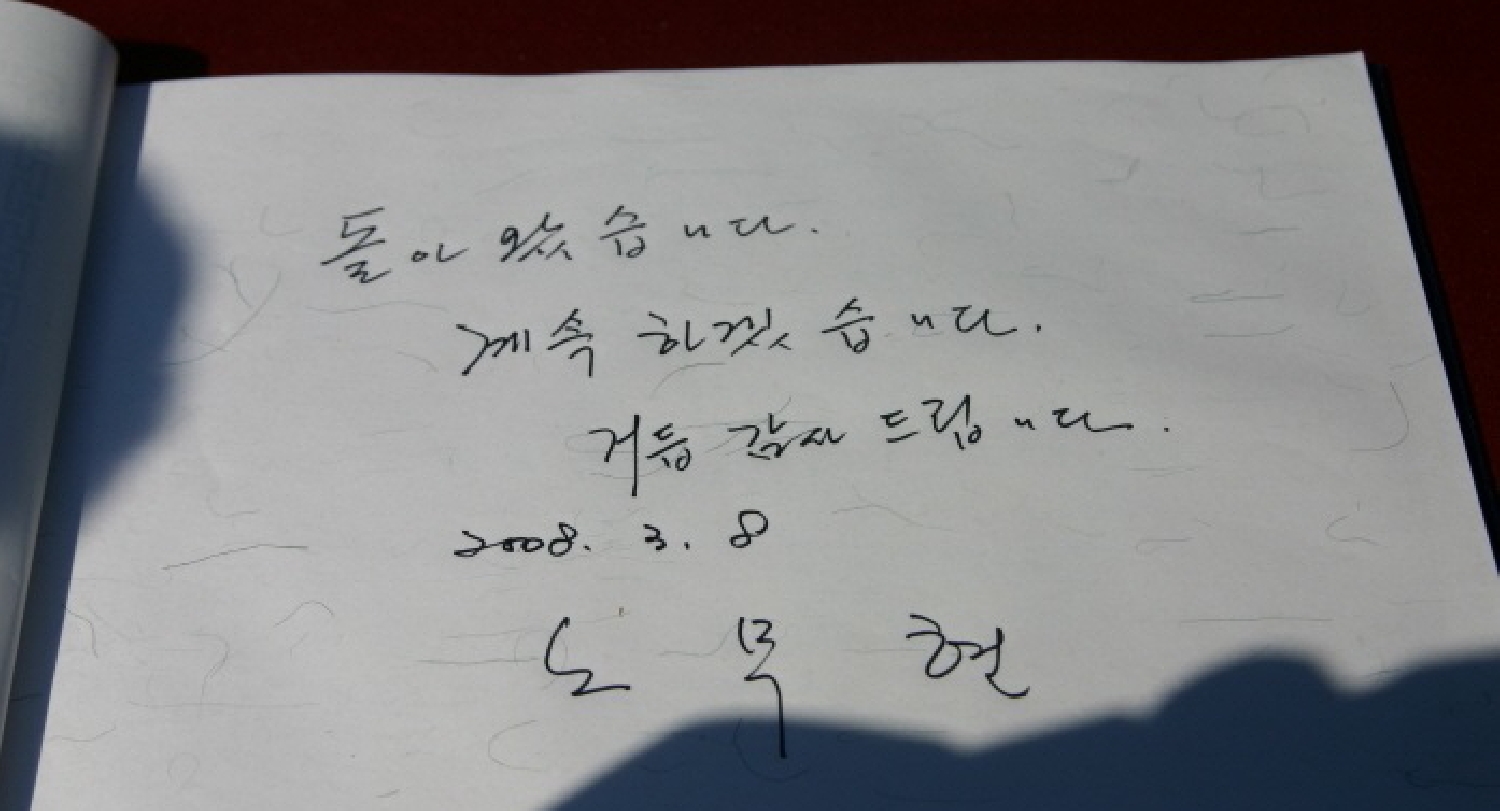 돌아 왔습니다.
계속 하겠습니다.
거듭 감사 드립니다.
2008. 3. 8
노 무 현